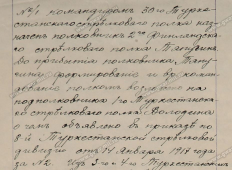 №1 командиром 30-го Турке-
станского стрѣлковаго полка наз-
наченъ полковникъ 2го Финляндска-
го стрѣлковаго полка, Тяпугинъ
во прибытія полковника, Тяпу-
гина, формированія и вр. коман-
дованіе полкомъ возложено на
подполковника 1-го Туркестанска-
го стрѣлковаго полка Володина
о чемъ объявлено въ приказѣ по
8-й Туркестанской стрѣлковой
дивизіи отъ 14 Января 1917 года
за №2. Изъ 3-го-4-го Туркестанскихъ